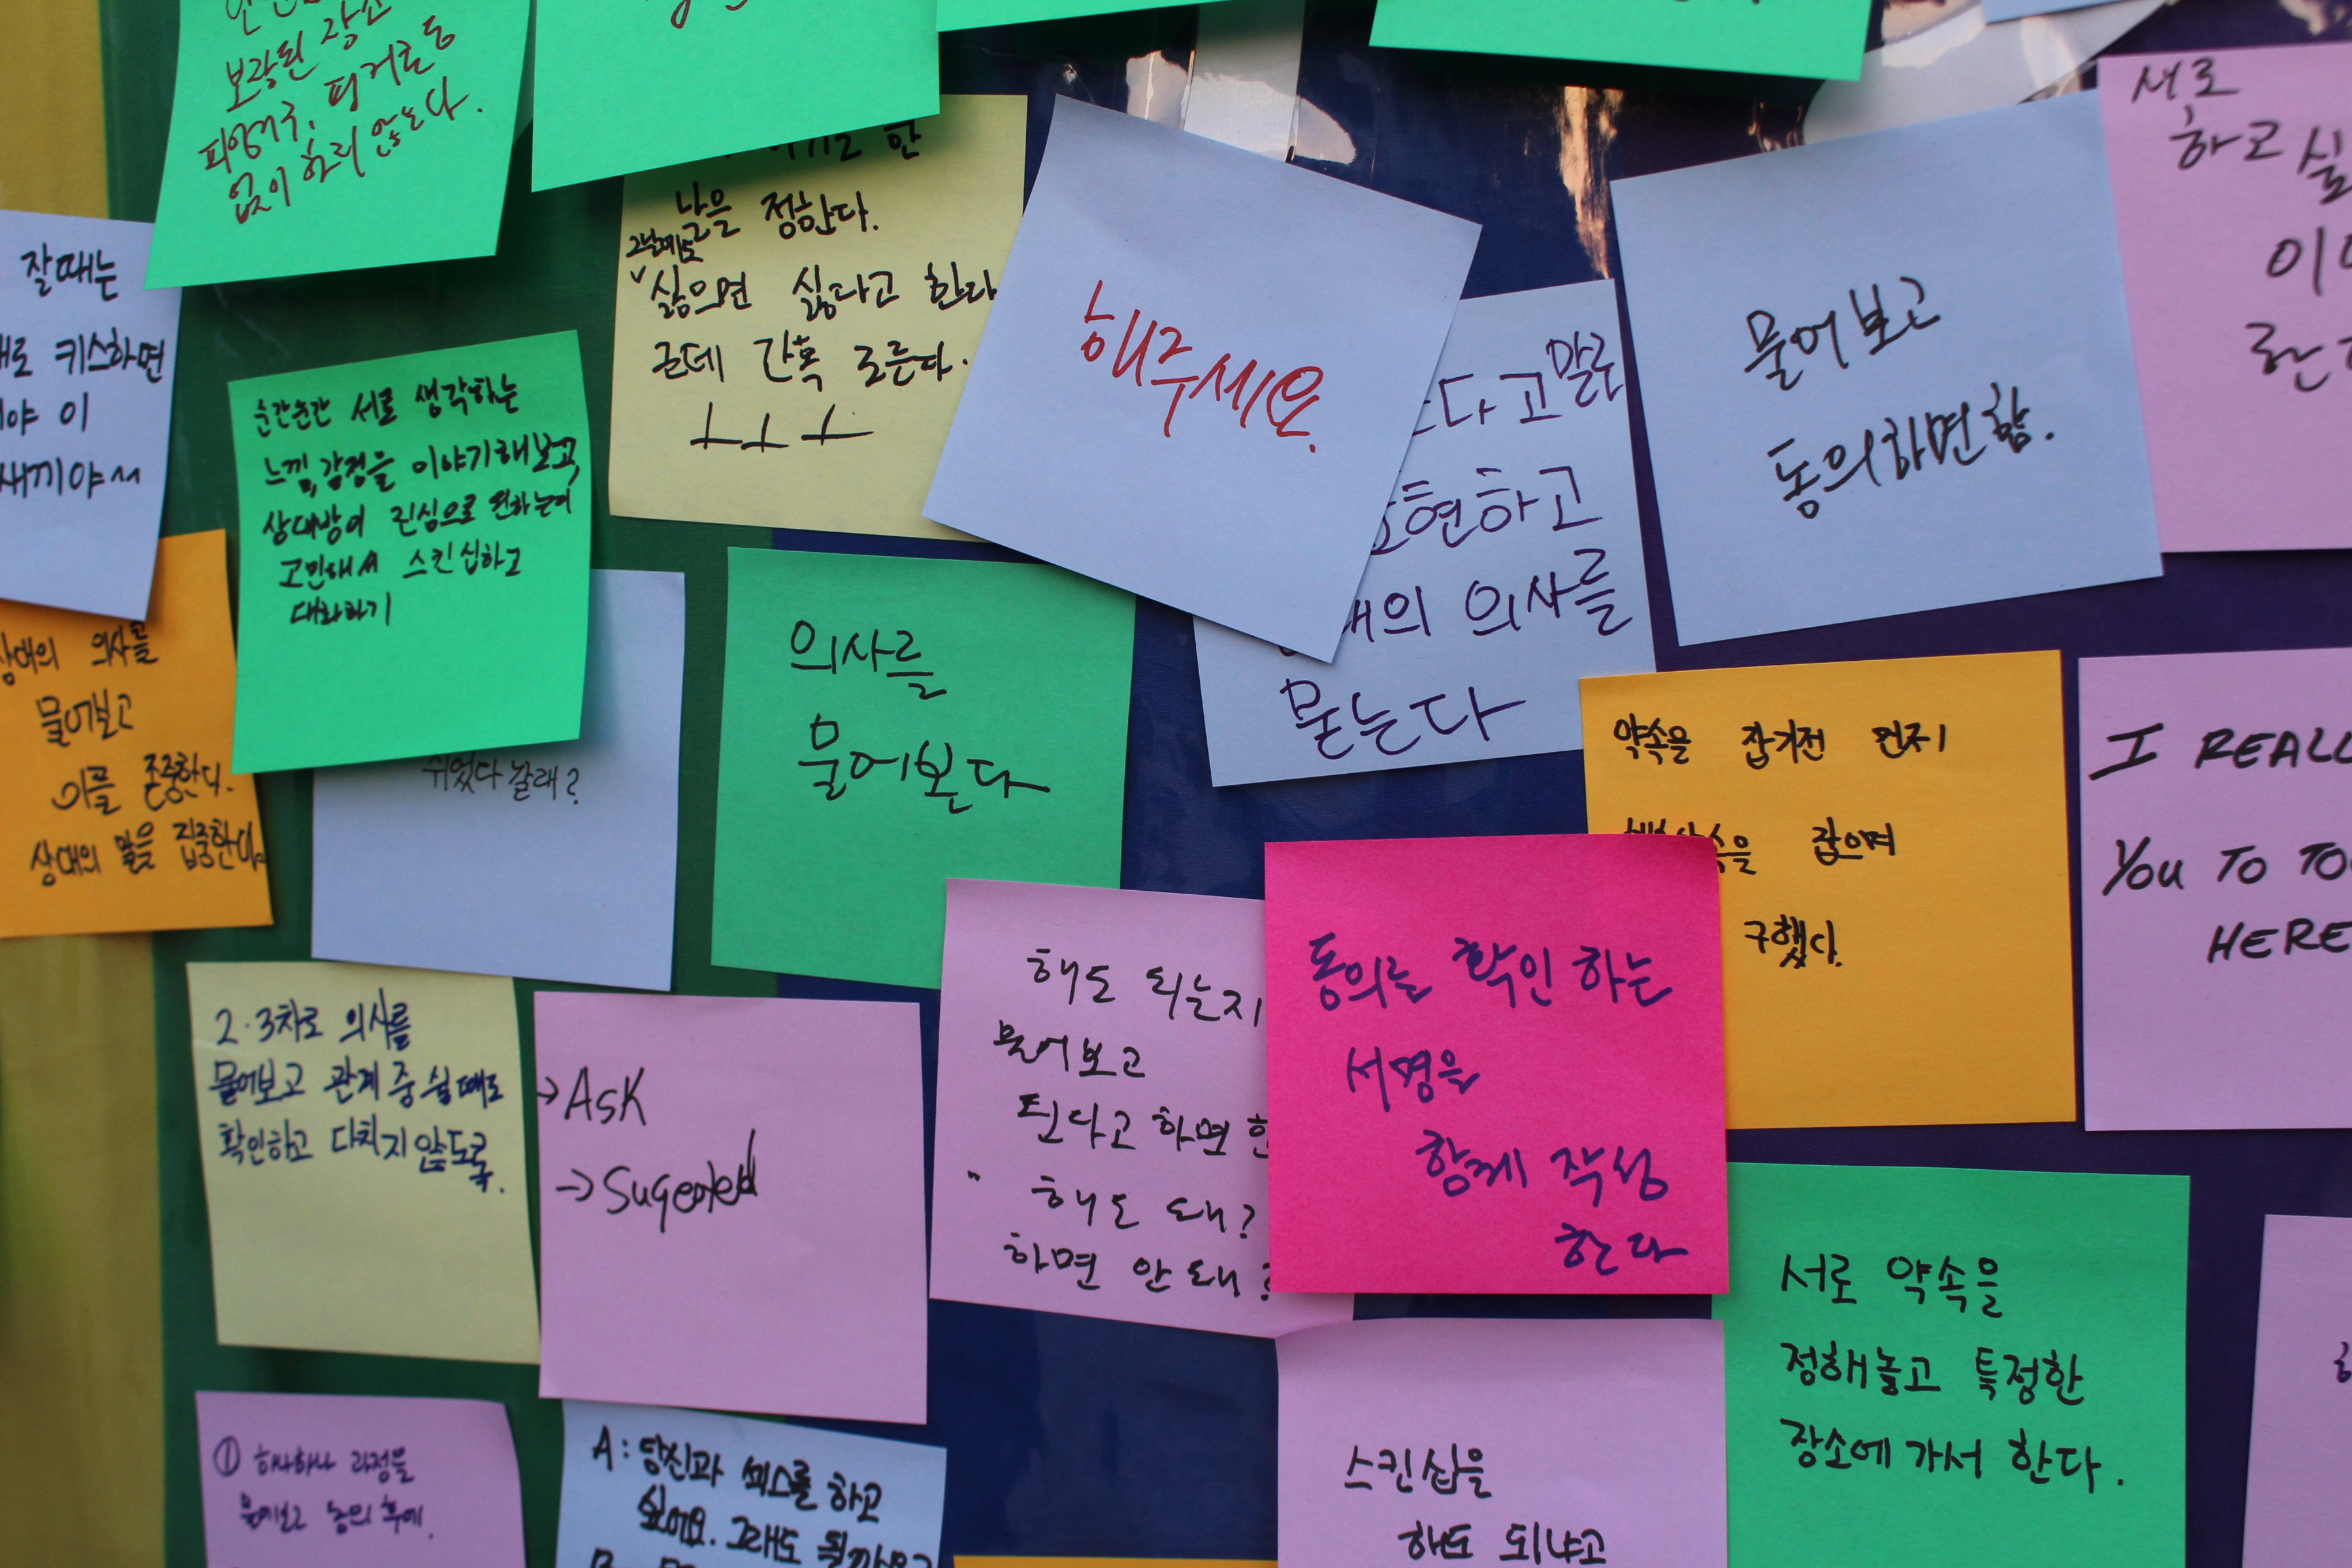 보장된 장소
피임기구, 핑거콘돔
없이 하지 않는다.
날을 정한다.
싫으면 싫다고 한다
근데 간혹 모른다.
ㅗㅗㅗ
해주세요.
다고 말로
표현하고
의 의사를
묻는다
물어보고
동의하면 함.
서로
하고 싶
잘때는
키스하면
야 이
새끼야~
순간순간 서로 생각하는
느낌, 감정을 이야기해보고,
상대방이 진심으로 원하는지
고민해서 스킨십하고
대화하기
상대의 의사를
물어보고
이를 존중한다.
상대의 말을 집중한다.
쉬었다 갈래?
의사를
물어본다
약속을 잡기전 먼저
잡으며
구했다.
I REALL
YOU TO TO
HERE
2·3차로 의사를
물어보고 관계 중 쉴때도
확인하고 다치지 않도록.
→ Ask
→
해도 되는지
물어보고
된다고 하면 한
해도 돼?
하면 안돼?
동의를 확인 하는
서명을
함께 작성
한다
서로 약속을
정해놓고 특정한
장소에 가서 한다.
① 하나하나 과정을
물어보고 동의 후에.
A: 당신과 섹스를 하고
싶어요. 그래도 될까요?
스킨십을
해도 되냐고